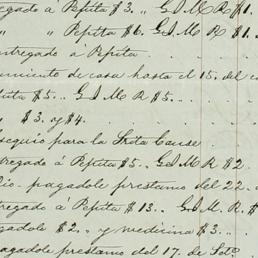 egado a Pepita $3. ,, G. I. M. R $1.
,, ,, Pepita $6. G. I. M R $1.
ntregado a Pepita
miento de casa hasta el 15. del c
pita $5. .. G. I. M R $5. ...
,, $3. y $4.
sequio para la Srita Cause
tregado á Pepita $5.. G. I. M. R $2
io. pagadole prestamo del 22.
tregado á Pepita $13. .. G. I. M. R. $
gadole $2. ,, y medicina $3. ..
pagadole prestamo del 17. de Set.